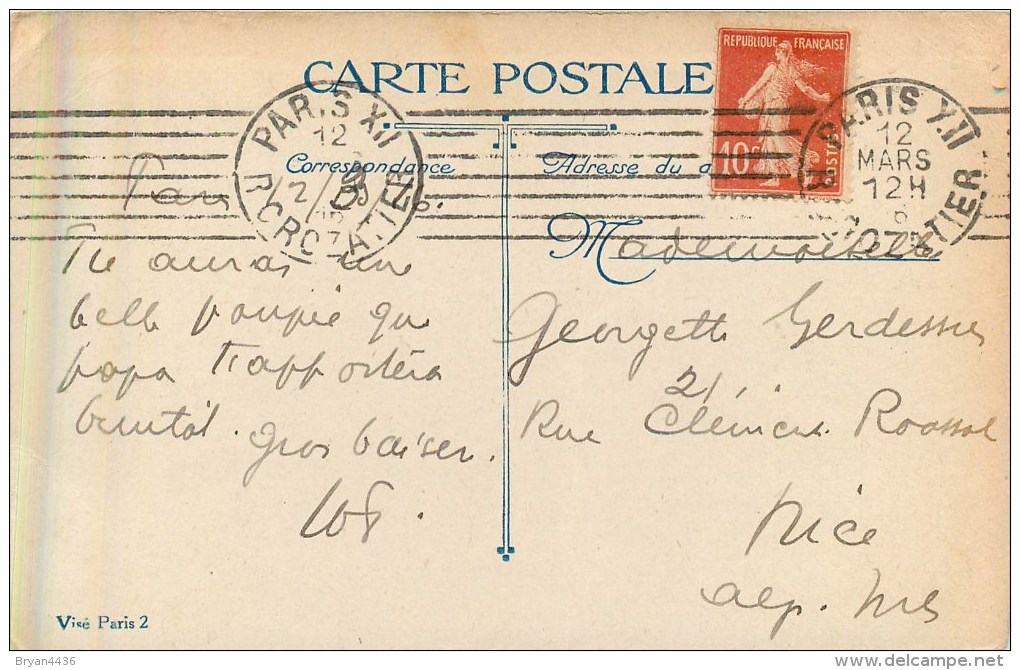 CARTE POSTALE
REPUBLIQUE FRANÇAISE
10c
POSTES
PARIS XII
12
R. CROZATIER
PARIS XII
12
MARS
12H
R. CROZATIER
Correspondance
Adresse du
Paris 12/3/16.
Tu auras une
belle poupée que
papa t'apportera
bientôt. Gros baiser.
Mademoiselle
Georgette Gerdessus
21
Rue Clément Roassal
Nice
Alp. Mes
Visé Paris 2
Bryan4436
delcampe.net